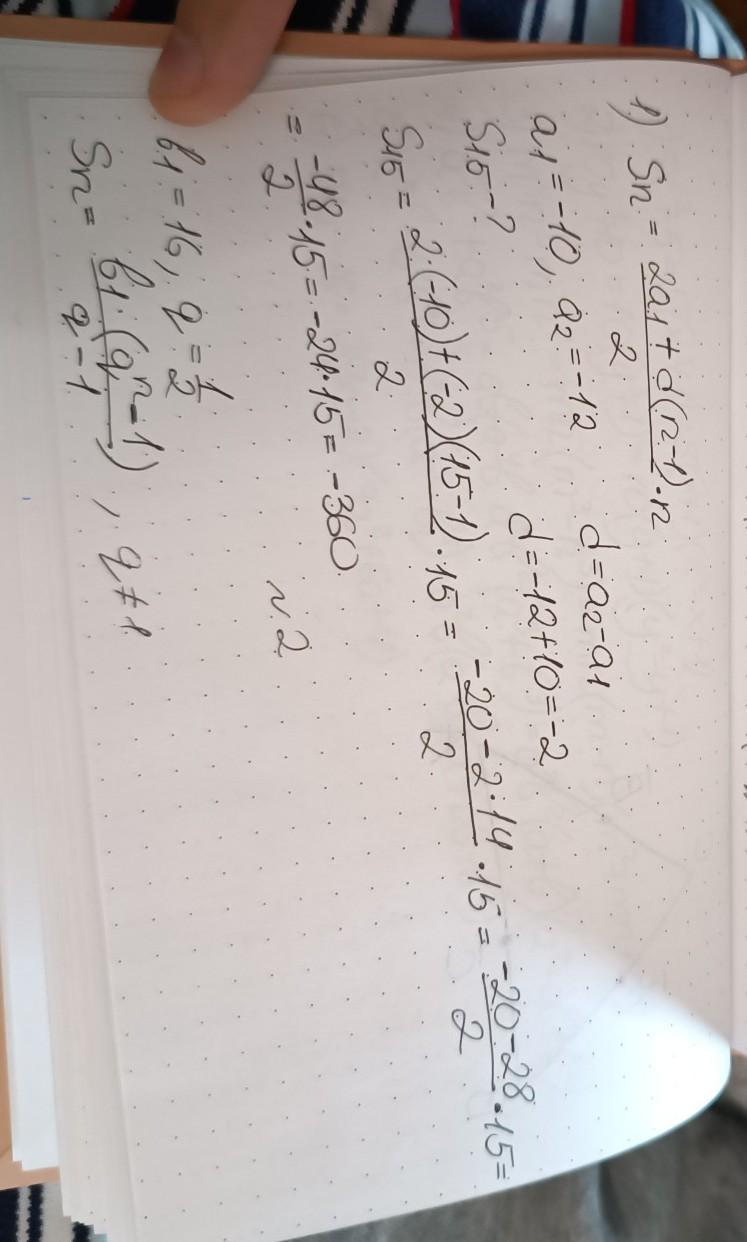 1) Sn = (2a1 + d(n-1))/2 · n
a1 = -10, a2 = -12 d = a2 - a1
S15 - ? d = -12 + 10 = -2
S15 = (2·(-10)+(-2)(15-1))/2 · 15 = (-20-2·14)/2 · 15 = (-20-28)/2 · 15 =
= -48/2 · 15 = -24·15 = -360
~ 2
b1 = 16, q = 1/2
Sn = b1·(q^n - 1)/(q - 1), q ≠ 1